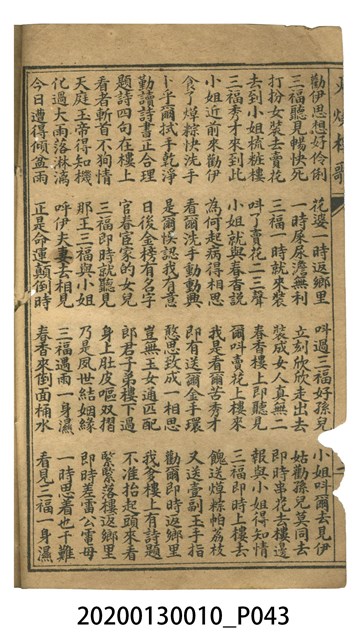 火燒樓歌
勸伊思想好伶俐 花婆一時返鄉里 叫過三福好孫兒 小姐叫爾去見伊
三福聽見暢快死 一時屎尿澹無利 立刻欣欣走出去 姑勸孫兒莫同去
打扮女裝去賣花 三福一時就來裝 裝成女人真無二 即時串花去樓邊
去到小姐梳粧樓 叫了賣花二三聲 春香樓上即聽見 報與小姐得知情
三福秀才來到此 小姐就與春香說 爾叫賣花上樓來 三福即時上樓去
小姐近前來勸伊 為何起病得相思 我是看爾苦秀才 饒送焿粽帕荔枝
食了焿粽快洗手 看爾洗手動動興 即有送爾金手環 又送壹副玉手指
卜乎爾拭手乾淨 是爾快認我有意 憨思致成一相思 勸爾即時返鄉里
勤讀詩書正合理 日後金榜有名字 豈無玉女通匹配 我爹樓上有詩題
題詩四句在樓上 官春臣家的女兒 郎君子弟樓下過 不准抬起頭來看
看者斬首不狥情 三福即時就聽見 身上肚皮嘔双摺 緊緊落樓返鄉里
天庭玉帝得知機 那王三福與小姐 乃是夙世結姻緣 即時差雷公電母
化過大雨落淋漓 呼伊夫妻去相見 三福遇雨一身濕 一時思着也干難
今日遭得傾盆雨 正是命運顛倒時 春香來倒面桶水 看見三福一身濕
20200130010_P043